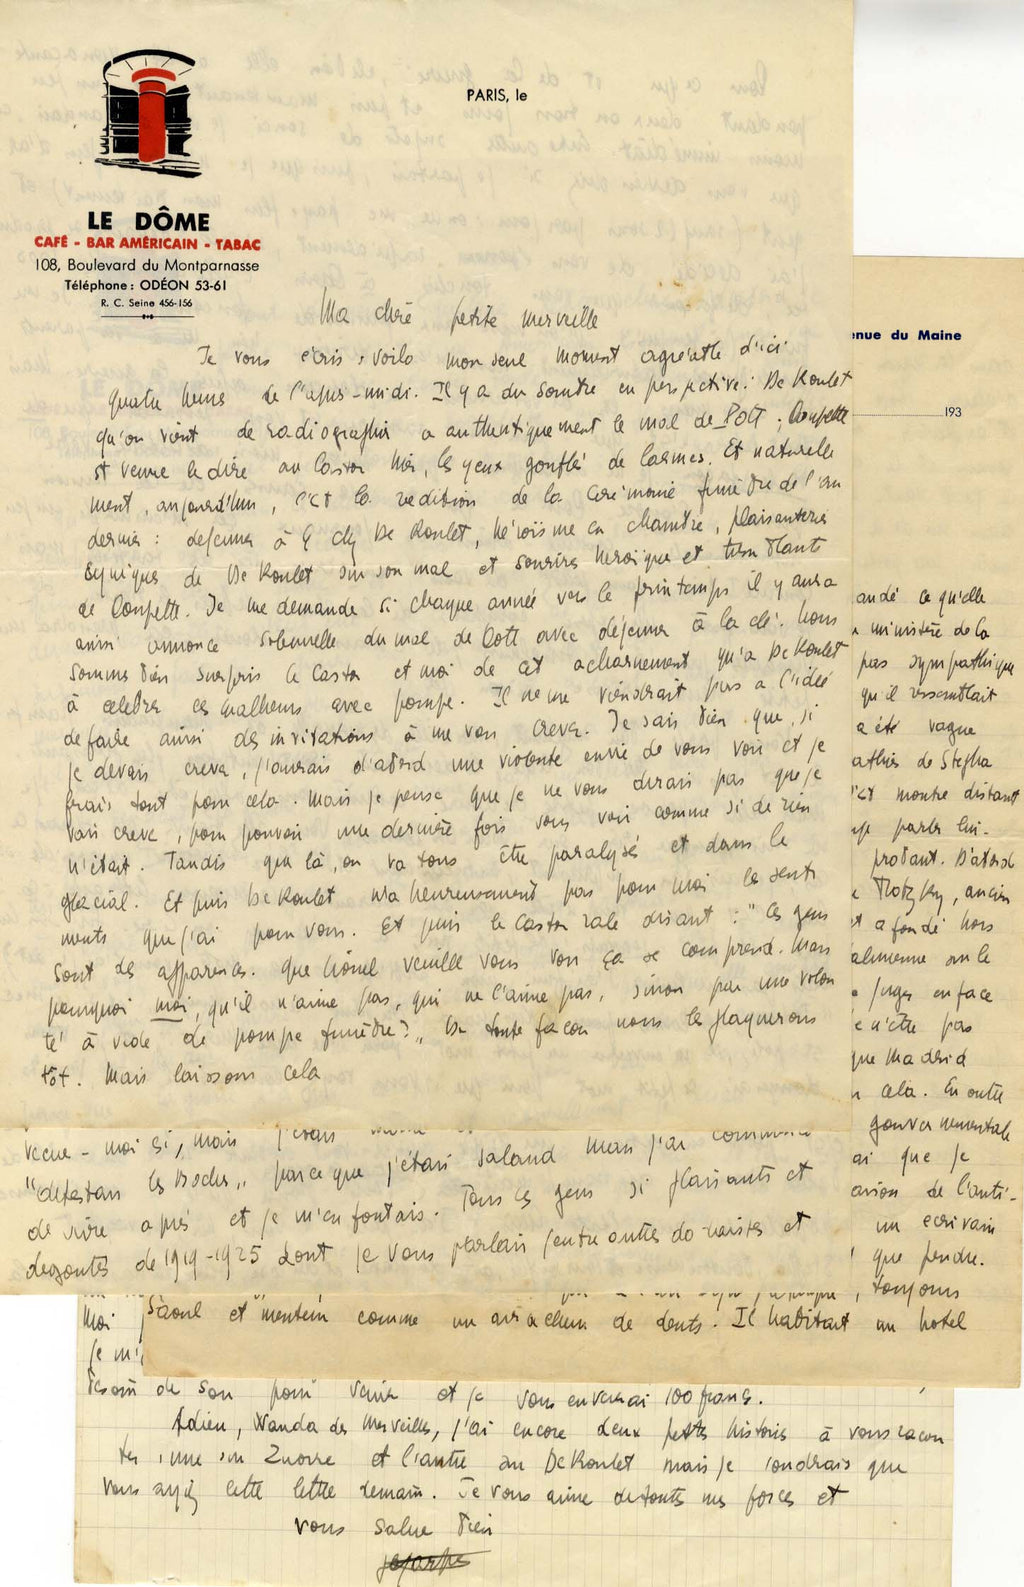 PARIS, le
LE DÔME
CAFÉ - BAR AMÉRICAIN - TABAC
108, Boulevard du Montparnasse
Téléphone : ODÉON 53-61
R. C. Seine 456-156
Ma chère petite merveille
Je vous écris, voilà mon seul moment agréable d'ici
quatre heures de l'après-midi. Il y a du sombre en perspective : De Roulet
qu'on vient de radiographier a authentiquement le mal de POTT ; Poupette
est venue le dire au Castor hier, les yeux gonflés de larmes. Et naturelle
ment, aujourd'hui, c'est la redition de la cérémonie funèbre de l'an
dernier : déjeuner à 4 chez De Roulet, héroïsme en chambre, plaisanteries
de De Roulet sur son mal et sourires héroïques et tremblants
de Poupette. Je me demande si chaque année vers le printemps il y aura
ainsi annonce solennelle du mal de Pott avec déjeuner à la clé. Nous
sommes bien surpris le Castor et moi de cet acharnement qu'a De Roulet
à célébrer ces malheurs avec pompe. Il ne me viendrait pas à l'idée
de faire ainsi des invitations à me voir crever. Je sais bien que, si
je devais crever, j'aurais d'abord une violente envie de vous voir et je
ferais tout pour cela. Mais je pense que je ne vous dirais pas que je
vais crever, pour pouvoir une dernière fois vous voir comme si de rien
n'était. Tandis que là, on va tous être paralysés et dans le
glacial. Et puis De Roulet n'a heureusement pas pour moi les senti
ments que j'ai pour vous. Et puis le Castor râle disant : "Ces gens
sont des apparences. Que Lionel veuille vous voir ça se comprend. Mais
pourquoi moi, qu'il n'aime pas, qui ne l'aime pas, sinon par une volon
té à vide de pompe funèbre ?" De toute façon nous les plaquerons
tôt. Mais laissons cela
enue du Maine
193
andé ce qu'elle
ministère de la
pas sympathique
qu'il ressemblait
a été vague
athies de Stépha
est montré distant
parler lui-
probant. D'abord
Trotzky, ancien
et a fondé hors
alienne sur le
juges en face
n'être pas
que Madrid
cela. En outre
gouvernementale
ai que je
de l'anti-
un écrivain
que pendre.
toujours
vécue - moi si, mais j'étais
"détestais les Boches" parce que j'étais salaud mais j'ai commencé
de vivre après et je m'en foutais. Tous ces gens si plaisants et
dégoûtés de 1919-1925 dont je vous parlais (entre autres dadaïstes et
saoul et menteur comme un arracheur de dents. Il habitait un hôtel
Moi
je m'
besoin de son pour venir et je vous enverrai 100 francs.
Adieu, Wanda des Merveilles, j'ai encore deux petites histoires à vous racon
ter, une sur Zuorre et l'autre sur De Roulet mais je voudrais que
vous ayez cette lettre demain. Je vous aime de toutes mes forces et
vous salue bien